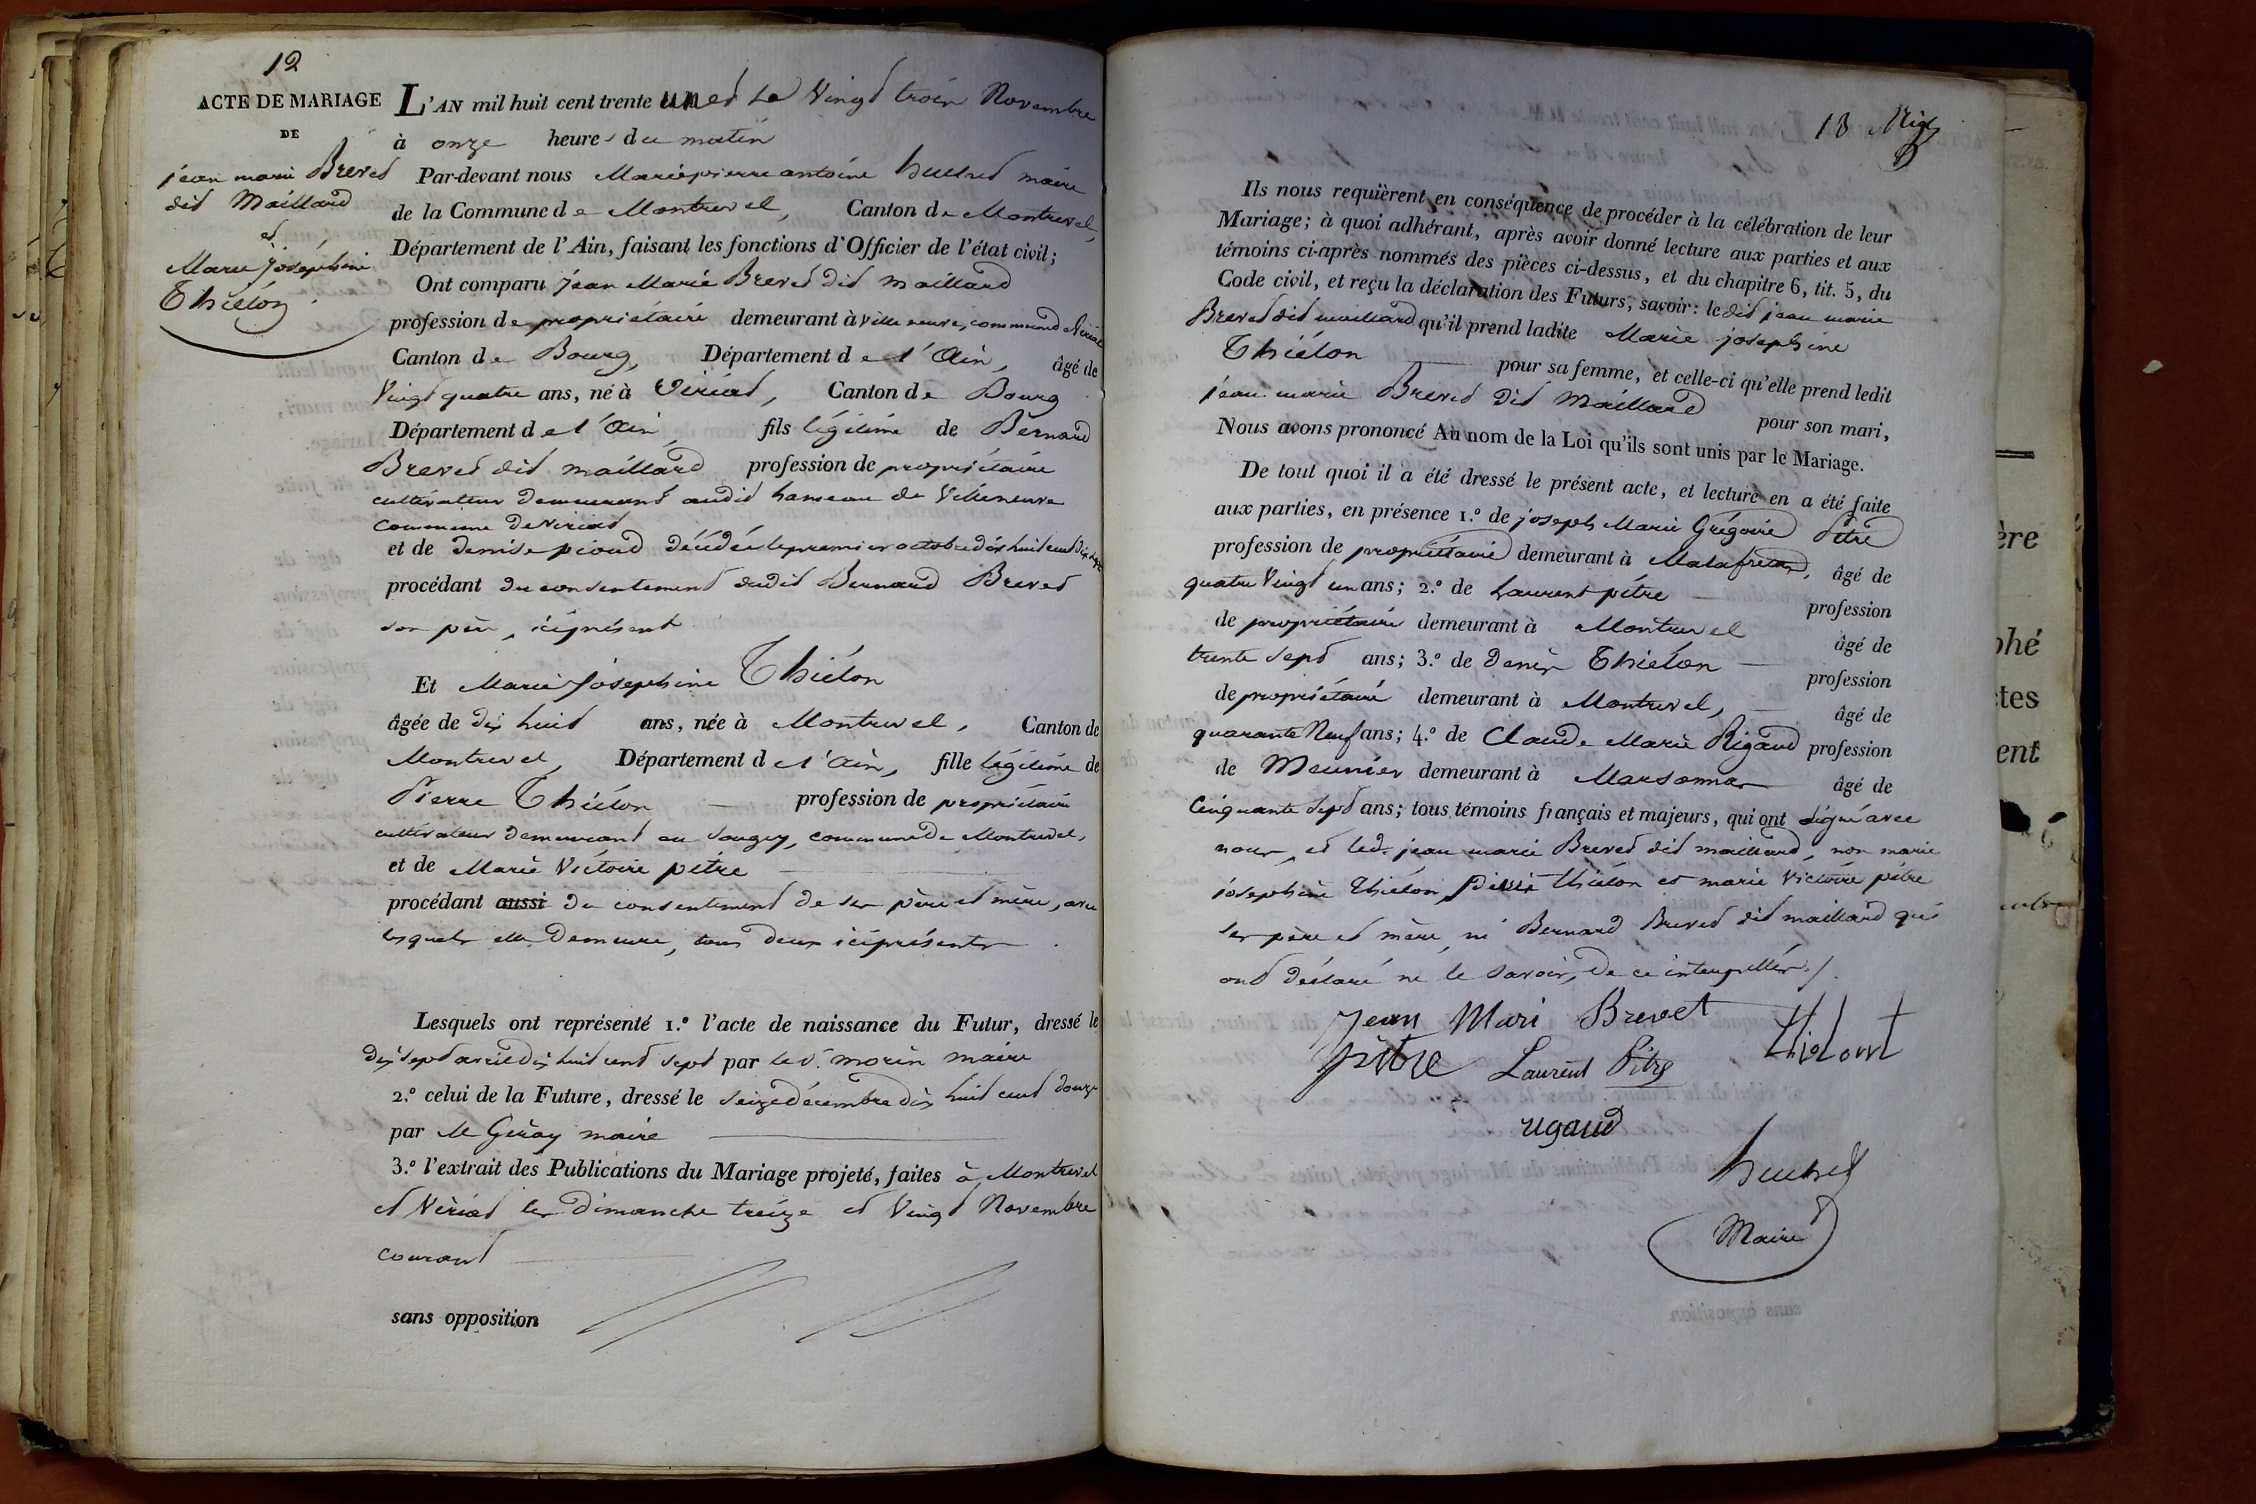 12
ACTE DE MARIAGE
DE
jean marie Brevet
dit Maillard
et
Marie Joséphine
Thiélon
L'AN mil huit cent trente un et le Vingt trois Novembre
à onze heures du matin
Par-devant nous Marie pierre antoine maire
de la Commune de Montrevel, Canton de Montrevel,
Département de l'Ain, faisant les fonctions d'Officier de l'état civil;
Ont comparu jean Marie Brevet dit maillard
profession de propriétaire demeurant à Ville neuve, commune de Viriat
Canton de Bourg, Département de l'Ain, âgé de
Vingt quatre ans, né à Viriat, Canton de Bourg
Département de l'Ain, fils légitime de Bernard
Brevet dit maillard profession de propriétaire
cultivateur demeurant audit hameau de Villeneuve
Commune de Viriat
et de denise pioud décédée le premier octobre dix huit cent
procédant du consentement dudit Bernard Brevet
son père, ici présent
Et Marie Joséphine Thiélon
âgée de dix huit ans, née à Montrevel, Canton de
Montrevel, Département de l'Ain, fille légitime de
Pierre Thiélon profession de propriétaire
cultivateur demeurant au Sougey, commune de Montrevel,
et de Marie Victoire pitre
procédant aussi du consentement de ses père et mère, avec
lesquels elle demeure, tous deux ici présents
Lesquels ont représenté 1.º l'acte de naissance du Futur, dressé le
dix sept avril dix huit cent sept par le s.r morin maire
2.º celui de la Future, dressé le seize décembre dix huit cent douze
par M Geray maire
3.º l'extrait des Publications du Mariage projeté, faites à Montrevel
et Viriat les dimanche treize et Vingt Novembre
courant
sans opposition
13
Ils nous requièrent en conséquence de procéder à la célébration de leur
Mariage; à quoi adhérant, après avoir donné lecture aux parties et aux
témoins ci-après nommés des pièces ci-dessus, et du chapitre 6, tit. 5, du
Code civil, et reçu la déclaration des Futurs, savoir: ledit jean marie
Brevet dit maillard qu'il prend ladite Marie josephine
Thiélon pour sa femme, et celle-ci qu'elle prend ledit
jean marie Brevet dit Maillard pour son mari,
Nous avons prononcé Au nom de la Loi qu'ils sont unis par le Mariage.
De tout quoi il a été dressé le présent acte, et lecture en a été faite
aux parties, en présence 1.º de joseph Marie Grégoire Pitre
profession de propriétaire demeurant à Malafretaz, âgé de
quatre Vingt un ans; 2.º de Laurent pitre profession
de propriétaire demeurant à Montrevel âgé de
trente sept ans; 3.º de denis Thiélon profession
de propriétaire demeurant à Montrevel, âgé de
quarante Neuf ans; 4.º de Claude Marie Rigaud profession
de Meunier demeurant à Marsonnas âgé de
Cinquante sept ans; tous témoins français et majeurs, qui ont signé avec
nous, et led. jean marie Brevet dit maillard, non marie
joséphine Thiélon, Pierre thiélon et marie Victoire pitre
ses père et mère, ni Bernard Brevet dit maillard qui
ont déclaré ne le savoir, de ce interpellés.
Jean Mari Brevet
pitre Laurent Pitre
rigaud
Maire
ère
phé
ctes
ent